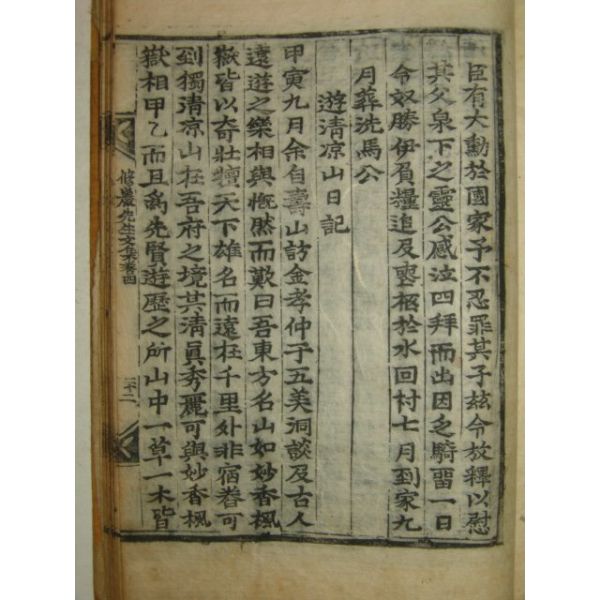 臣有大勳於國家予不忍罪其子玆令放釋以慰
其父泉下之靈公感泣四拜而出因乏騎留一日
令奴勝伊負糧追及喪柩於水回村七月到家九
月葬洗馬公
遊清凉山日記
甲寅九月余自壽山訪金孝仲于五美洞談及古人
遠遊之樂相與慨然而歎曰吾東方名山如妙香楓
嶽皆以奇壯擅天下雄名而遠在千里外非宿舂可
到獨清凉山在吾府之境其清眞秀麗可與妙香楓
嶽相甲乙而且爲先賢遊歷之所山中一草一木皆
修巖先生文集卷四
三十二